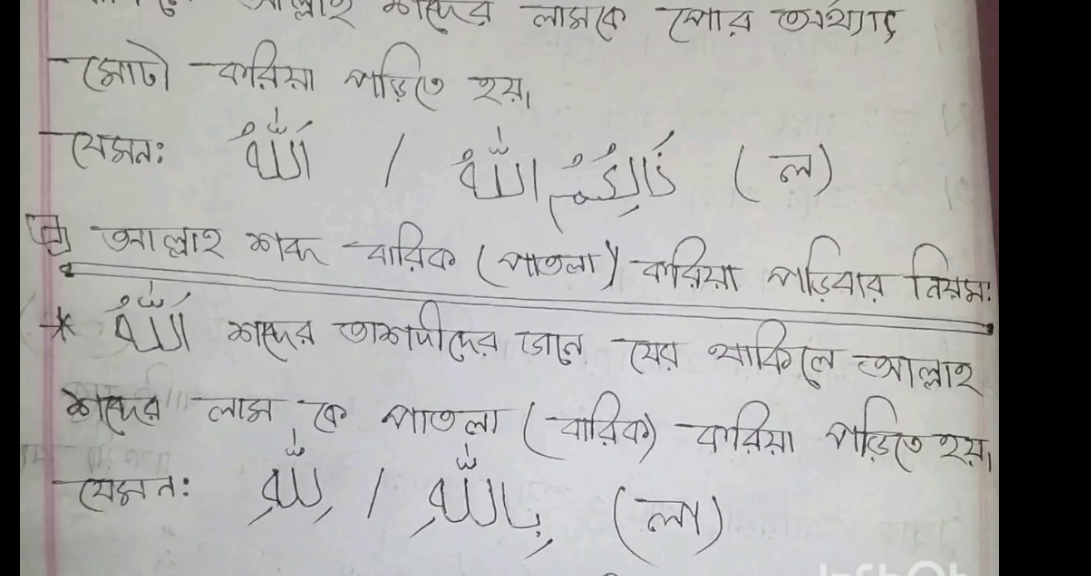 আল্লাহ শব্দের লামকে পোর অর্থ্যাৎ
মোটা করিয়া পড়িতে হয়।
যেমন: اَللّٰهُ / ذَالِكُمُ اللّٰهُ (ল)
আল্লাহ শব্দ বারিক (পাতলা) করিয়া পড়িবার নিয়ম:
* اَللّٰهُ শব্দের তাশদীদের ডানে যের থাকিলে আল্লাহ
শব্দের লাম কে পাতলা (বারিক) করিয়া পড়িতে হয়।
যেমন: لِلّٰهِ / بِاللّٰهِ (লা)